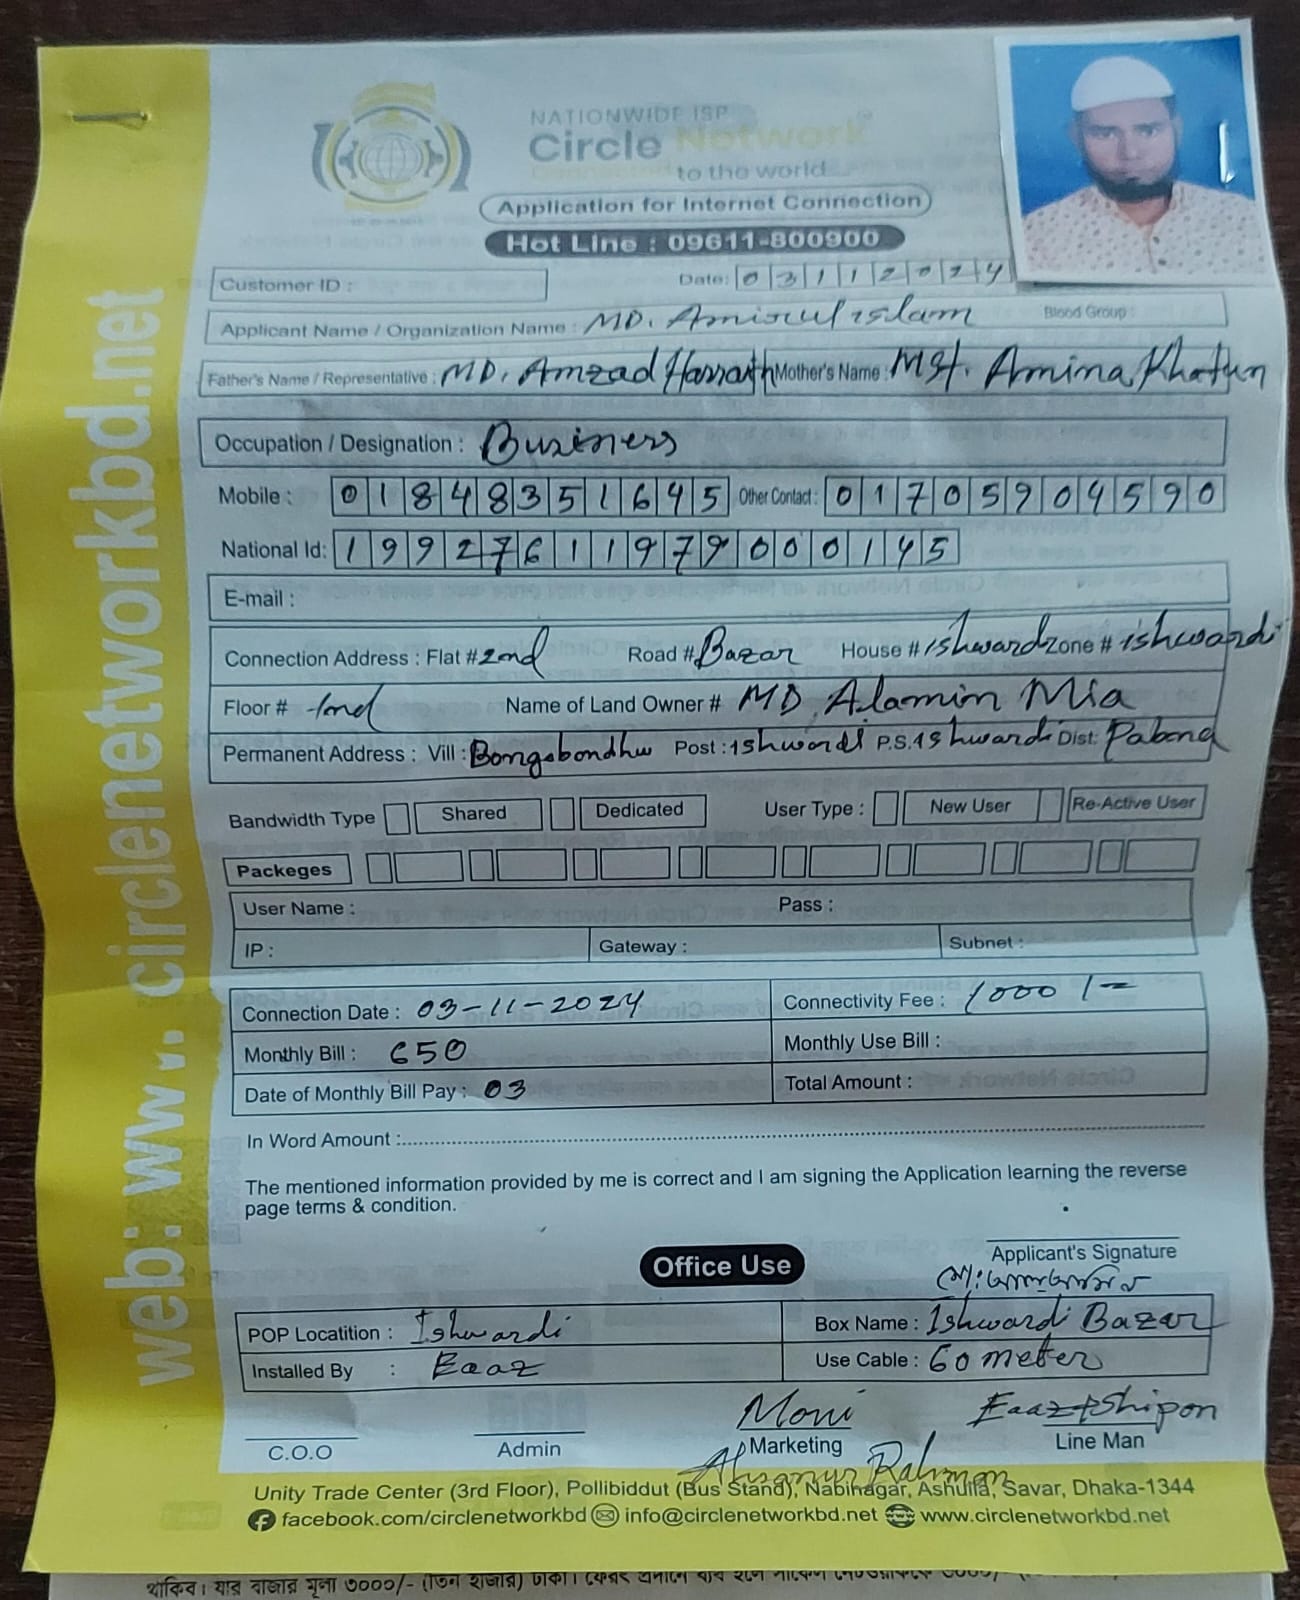 NATIONWIDE ISP
Circle Network
to the world
Application for Internet Connection
Hot Line : 09611-800900
Customer ID :
Date: 03112024
Applicant Name / Organization Name : MD. Amirul islam Blood Group :
Father's Name / Representative : MD. Amzad Mother's Name : Mst. Amina Khatun
Occupation / Designation : Business
Mobile : 01848351645 Other Contact : 01705904590
National Id: 19927611979000145
E-mail :
Connection Address : Flat # 2nd Road # Bazar House # ishwardi zone # ishwardi
Floor # Name of Land Owner # MD. Alamin Mia
Permanent Address : Vill : Bongobondhu Post : ishwordi P.S. ishwardi Dist: Pabona
Bandwidth Type Shared Dedicated User Type : New User Re-Active User
Packeges
User Name : Pass :
IP : Gateway : Subnet :
Connection Date : 03-11-2024 Connectivity Fee : 1000/=
Monthly Bill : 650 Monthly Use Bill :
Date of Monthly Bill Pay : 03 Total Amount :
In Word Amount :
The mentioned information provided by me is correct and I am signing the Application learning the reverse
page terms & condition.
Applicant's Signature
Office Use
POP Locatition : Ishwardi Box Name : Ishwardi Bazar
Installed By : Eaaz Use Cable : 60 meter
Moni Eaaz+Shipon
C.O.O Admin Marketing Line Man
Rahman
Unity Trade Center (3rd Floor), Pollibiddut (Bus Stand), Nabinagar, Ashulia, Savar, Dhaka-1344
facebook.com/circlenetworkbd info@circlenetworkbd.net www.circlenetworkbd.net
web: www. circlenetworkbd.net
থাকিব। যার বাজার মূল্য ৩০০০/- (তিন হাজার) টাকা।